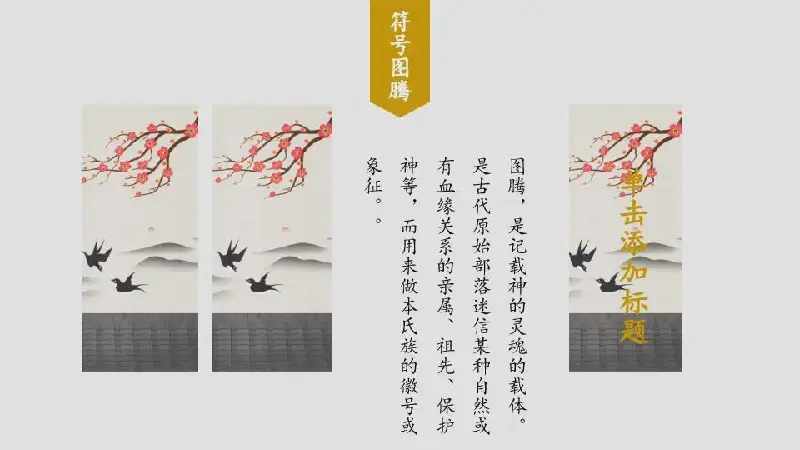 符号图腾
单击添加标题
图腾，是记载神的灵魂的载体。
是古代原始部落迷信某种自然或
有血缘关系的亲属、祖先、保护
神等，而用来做本氏族的徽号或
象征。。